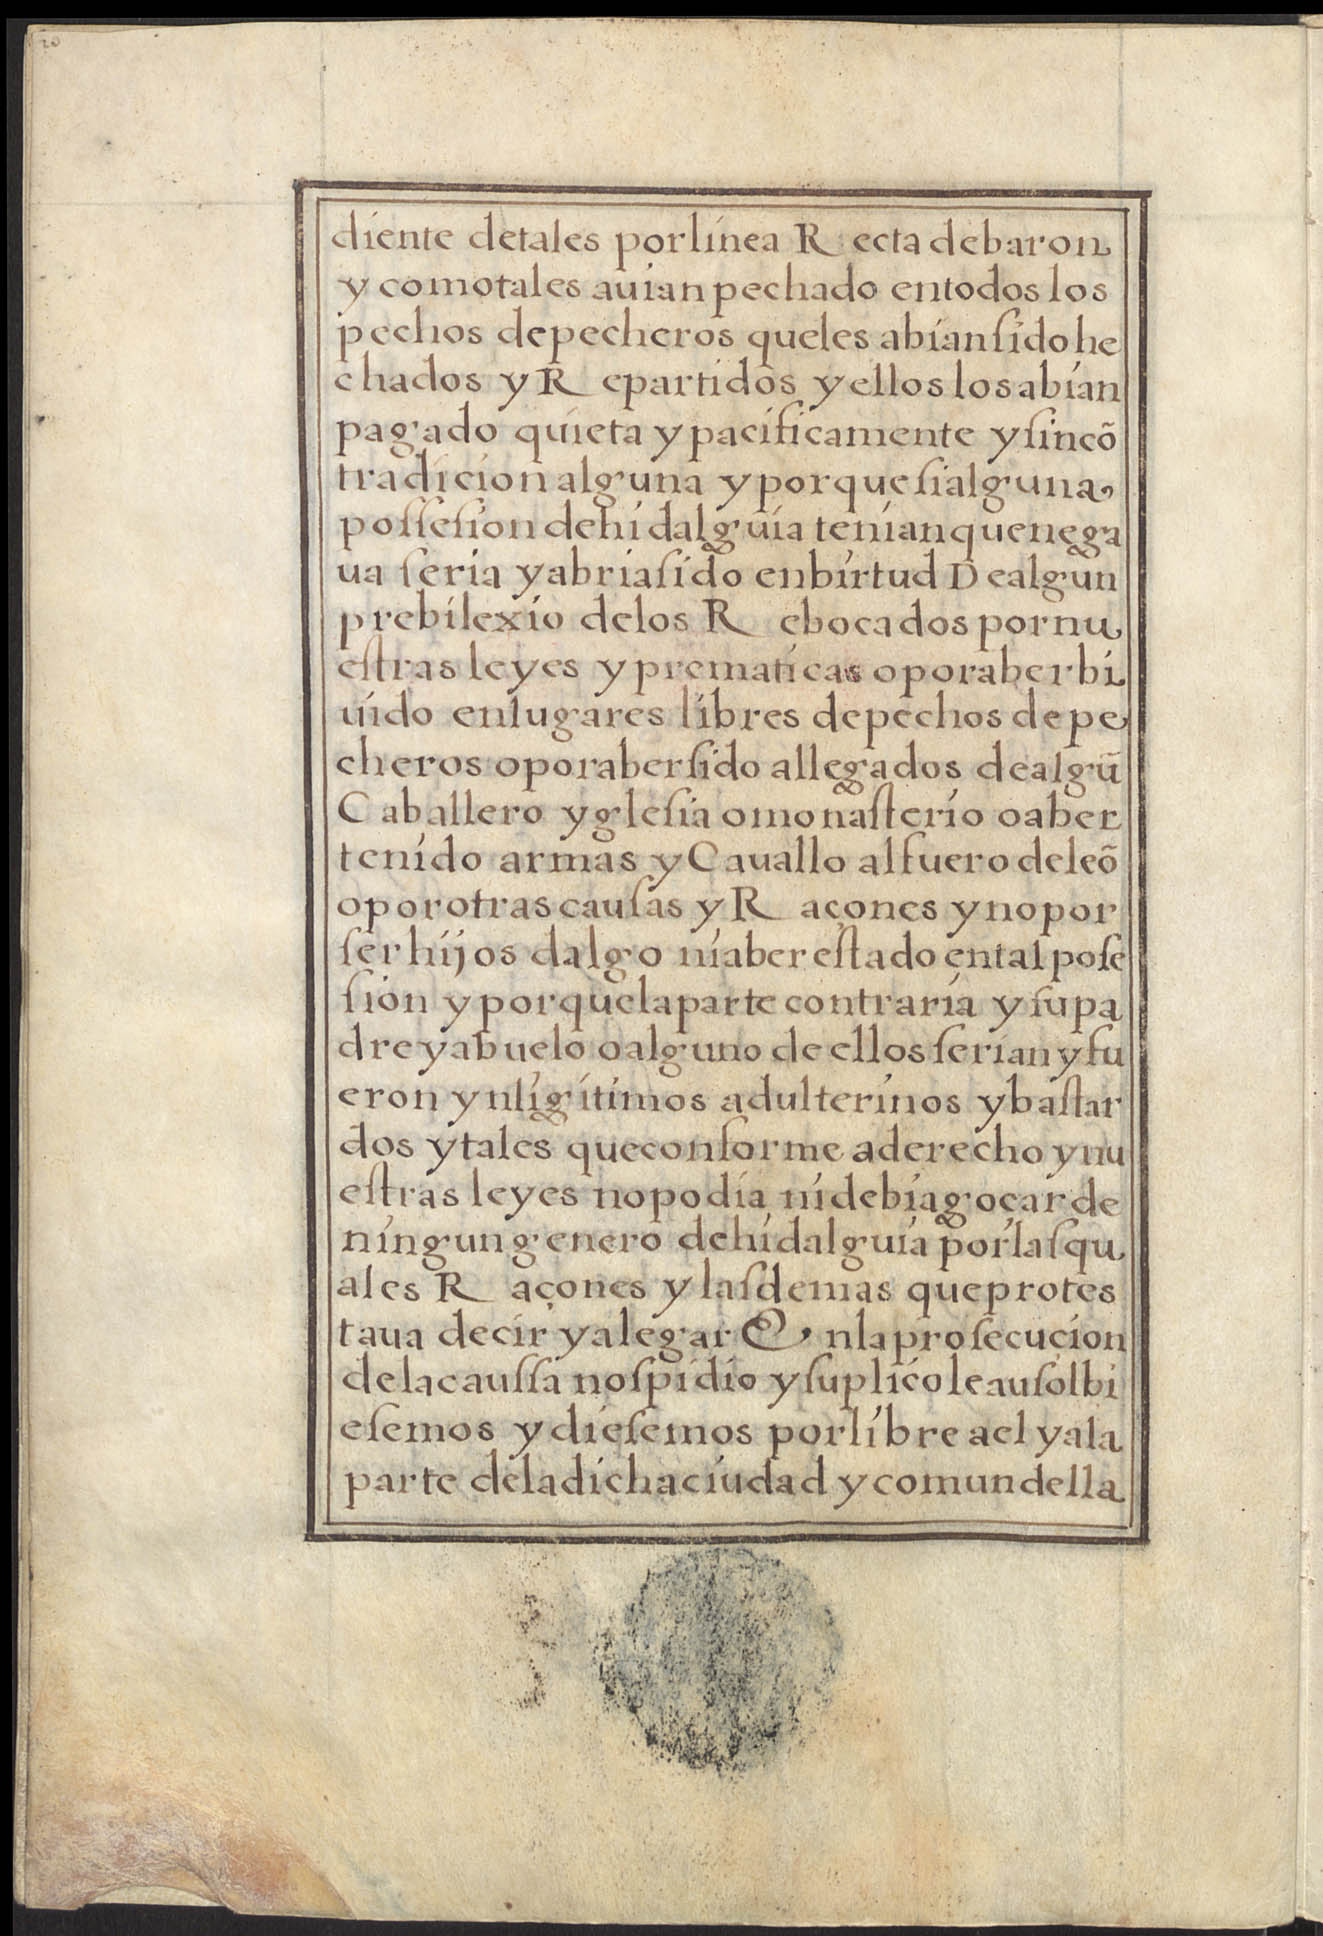 20
diente detales porlinea R ecta debaron
y comotales auian pechado entodos los
pechos depecheros queles abian ſido he
chados y R epartidos y ellos los abian
pagado quieta y pacificamente y ſincõ
tradicion alguna y porque ſi alguna
poſſeſion dehidalguia tenian quenega
ua ſeria y abria ſido enbirtud D ealgun
prebilexio delos R ebocados por nu
eſtras leyes y prematicas o poraber bi
uido enlugares libres depechos de pe
cheros o poraber ſido allegados dealgũ
Caballero yglesia o monaſterio o aber
tenido armas y Cauallo al fuero deleõ
o por otras cauſas y R açones y no por
ſer hijos dalgo ni aber eſtado ental poſe
ſion y porque laparte contraria y ſu pa
dre y abuelo o alguno de ellos ſerian y fu
eron ynligitimos adulterinos y baſtar
dos y tales que conforme a derecho y nu
eſtras leyes no podia ni debia goçar de
ningun genero dehidalguia por laſ qu
ales R açones y laſ demas que protes
taua decir y alegar E nla proſecucion
dela cauſſa noſ pidio y ſuplico le auſolbi
eſemos y dieſemos por libre a el y ala
parte dela dicha ciudad y comun della